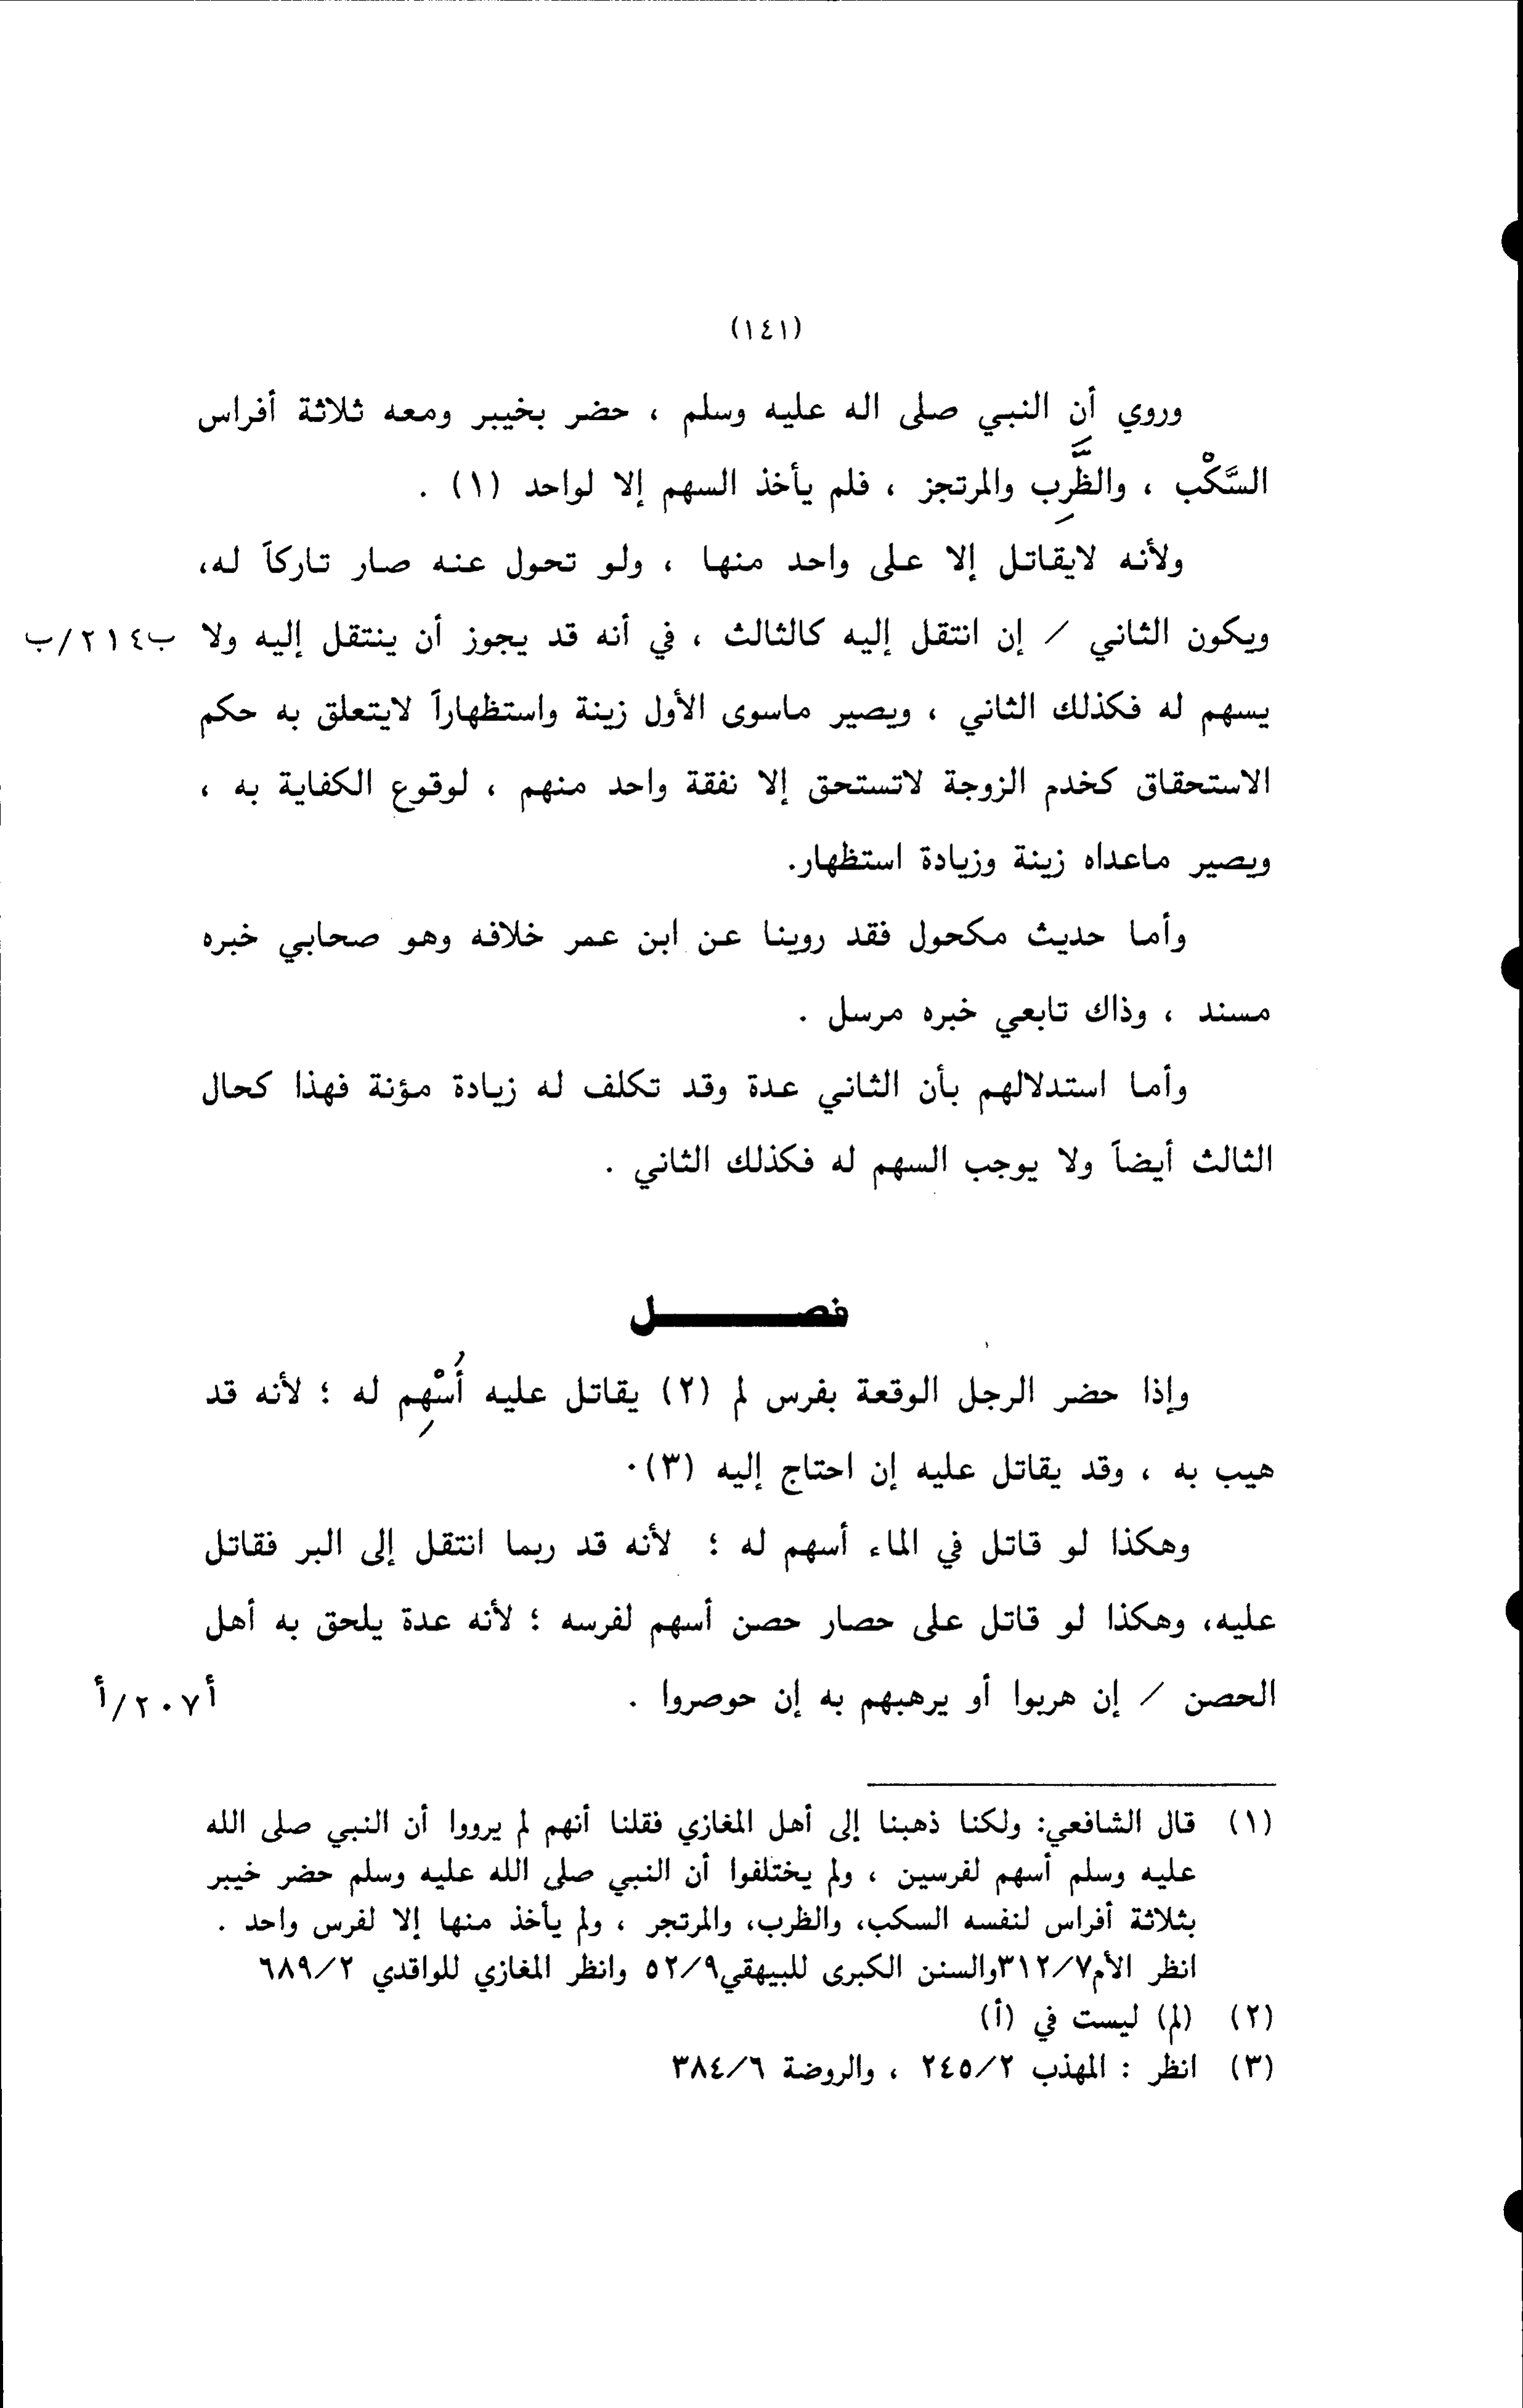 (١٤١)
وروي أن النبي صلى اله عليه وسلم ، حضر بخيبر ومعه ثلاثة أفراس
السَّكْب ، والظَّرِب والمرتجز ، فلم يأخذ السهم إلا لواحد (١) .
ولأنه لايقاتل إلا على واحد منها ، ولو تحول عنه صار تاركاً له،
ويكون الثاني / إن انتقل إليه كالثالث ، في أنه قد يجوز أن ينتقل إليه ولا ب٢١٤/ب
يسهم له فكذلك الثاني ، ويصير ماسوى الأول زينة واستظهاراً لايتعلق به حكم
الاستحقاق كخدم الزوجة لاتستحق إلا نفقة واحد منهم ، لوقوع الكفاية به ،
ويصير ماعداه زينة وزيادة استظهار.
وأما حديث مكحول فقد روينا عن ابن عمر خلافه وهو صحابي خبره
مسند ، وذاك تابعي خبره مرسل .
وأما استدلالهم بأن الثاني عدة وقد تكلف له زيادة مؤنة فهذا كحال
الثالث أيضاً ولا يوجب السهم له فكذلك الثاني .
فصـــــــــل
وإذا حضر الرجل الوقعة بفرس لم (٢) يقاتل عليه أُسْهِم له ؛ لأنه قد
هيب به ، وقد يقاتل عليه إن احتاج إليه (٣)٠
وهكذا لو قاتل في الماء أسهم له ؛ لأنه قد ربما انتقل إلى البر فقاتل
عليه، وهكذا لو قاتل على حصار حصن أسهم لفرسه ؛ لأنه عدة يلحق به أهل
الحصن / إن هربوا أو يرهبهم به إن حوصروا . أ٢٠٧/أ
(١) قال الشافعي: ولكنا ذهبنا إلى أهل المغازي فقلنا أنهم لم يرووا أن النبي صلى الله
عليه وسلم أسهم لفرسين ، ولم يختلفوا أن النبي صلى الله عليه وسلم حضر خيبر
بثلاثة أفراس لنفسه السكب، والظرب، والمرتجر ، ولم يأخذ منها إلا لفرس واحد .
انظر الأم٣١٢/٧والسنن الكبرى للبيهقي٥٢/٩ وانظر المغازي للواقدي ٦٨٩/٢
(٢) (لم) ليست في (أ)
(٣) انظر : المهذب ٢٤٥/٢ ، والروضة ٣٨٤/٦